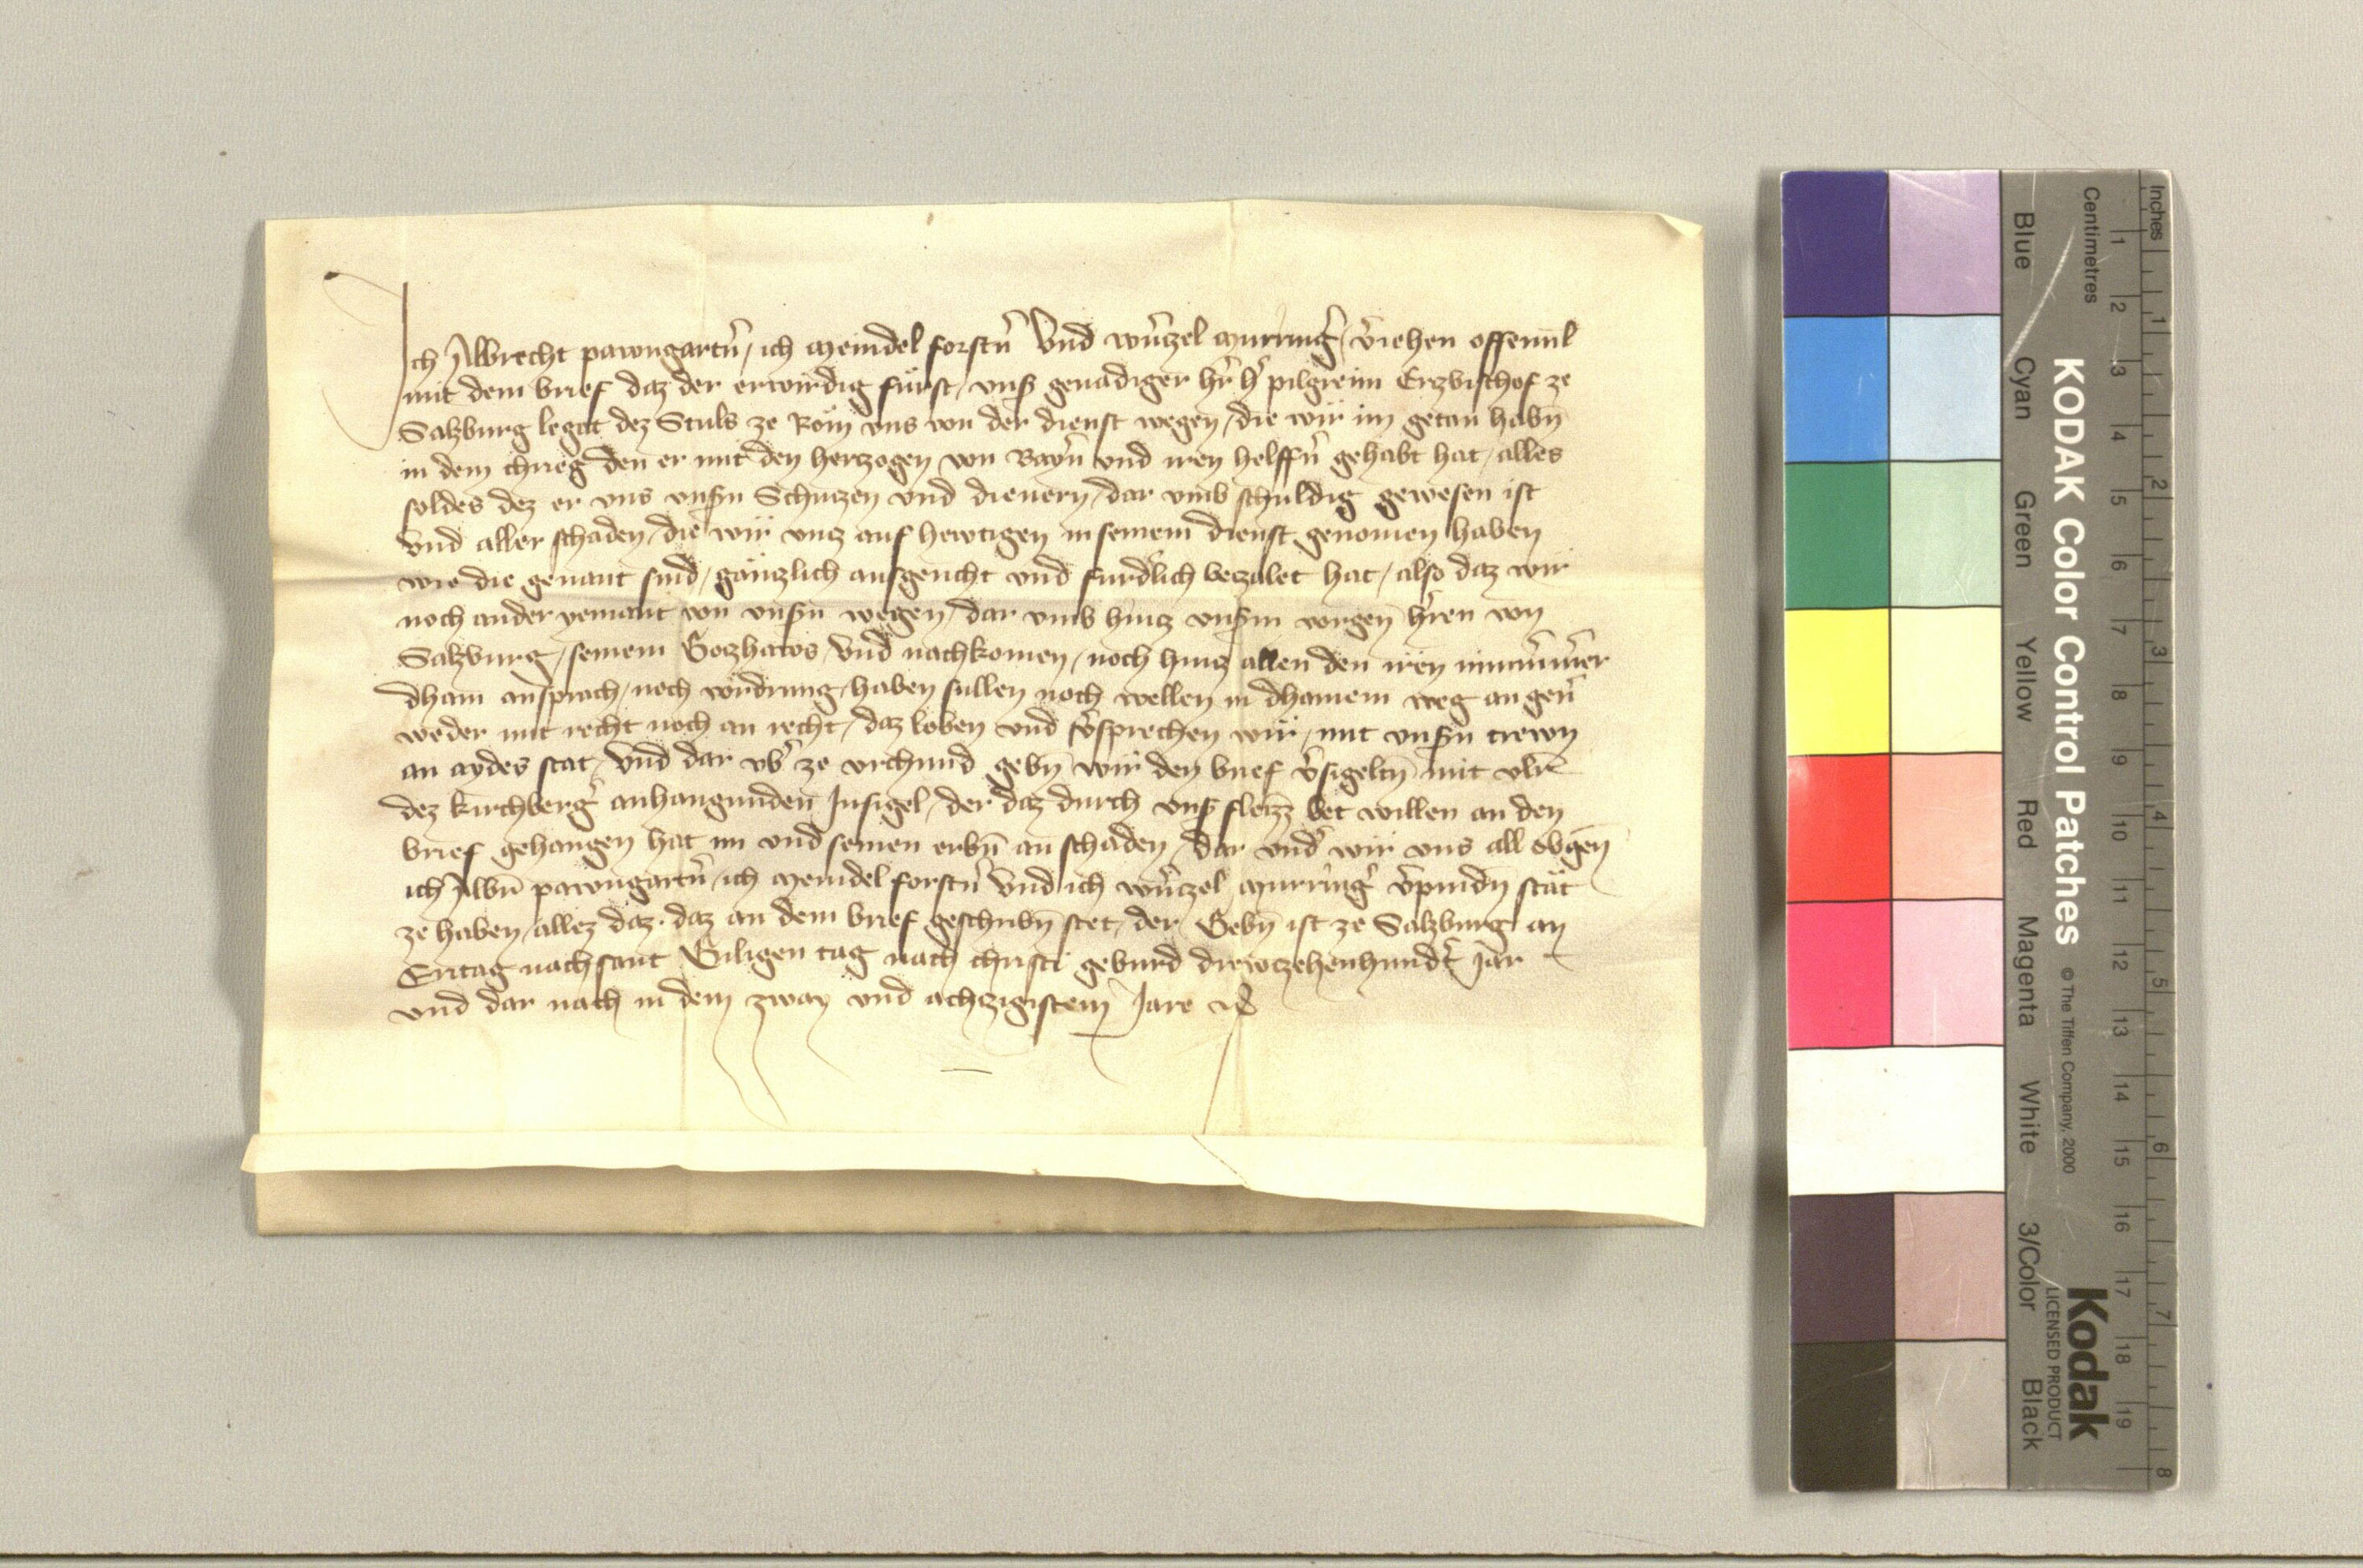 Ich Albrecht pawngartn̄, ich Meindel forstn̄ Vnd wn̄tzel Murrinḡ, v̄iehen offennl
mit dem brief daz der erwirdig fürst, vnsß genädiger hr̄ h̄ pilgreim Erzbischof ze
Salzburg legat dez Stuls ze Rom vns von der dienst wegen, die wir im getan habn̄
in dem chrieg den er mit den hertzogen von Bayrn̄ vnd iren helffn̄ gehabt hat, alles
soldes dez er vns vnsßn Schutzen vnd dienern, dar vmb schuldig gewesen ist
Vnd aller schaden, die wir vnz auf hewtigen in seinem dienst genomen haben
wie die genant sind, gäntzlich ausgericht vnd fürdͤlich betzalet hat, also daz wir
noch ander yemant von vnsßn wegen, dar vmb hintz vnsßm vorgen̄ hr̄ren von
Salzburg, seinem Gotzhaws Vnd nachkomen, noch hintz allen den iren nimm̄mer
dhain ansprach, noch vordrung, haben sullen noch wellen in dhainem weg an gen̄
weder mit recht noch an recht, daz loben vnd v̄sprechen wir, mit vnsßn trewn
an aydes stat, Vnd dar vb̄ ze vrchund gebn̄ wir den brief v̄sigeltn̄ mit vlrē
dez kirchberḡ anhangunden Insigel, der daz durch vnsß fleizz bet willen an den
brief gehangen hat im vnd seinen erbn̄ an schaden, dar vnd̄ wir vns all obgen̄
ich Albn̄ pawngartn̄, ich Meindel forstn̄ Vnd ich wn̄tzel Murrinḡ v̄pindn stät
ze haben, allez daz, daz an dem brief geschribn̄ stet, der Gebn̄ ist ze Salzburg an
Eritag nach sant Giligen tag nach christi geburd drewtzehenhundt̄ Jar
vnd dar nach in dem zway vnd achzigistem Jare
Inches
Centimetres
1 2 3 4 5 6 7 8 9 10 11 12 13 14 15 16 17 18 19
1 2 3 4 5 6 7 8
KODAK Color Control Patches
© The Tiffen Company, 2000
Kodak
LICENSED PRODUCT
Blue Cyan Green Yellow Red Magenta White 3/Color Black